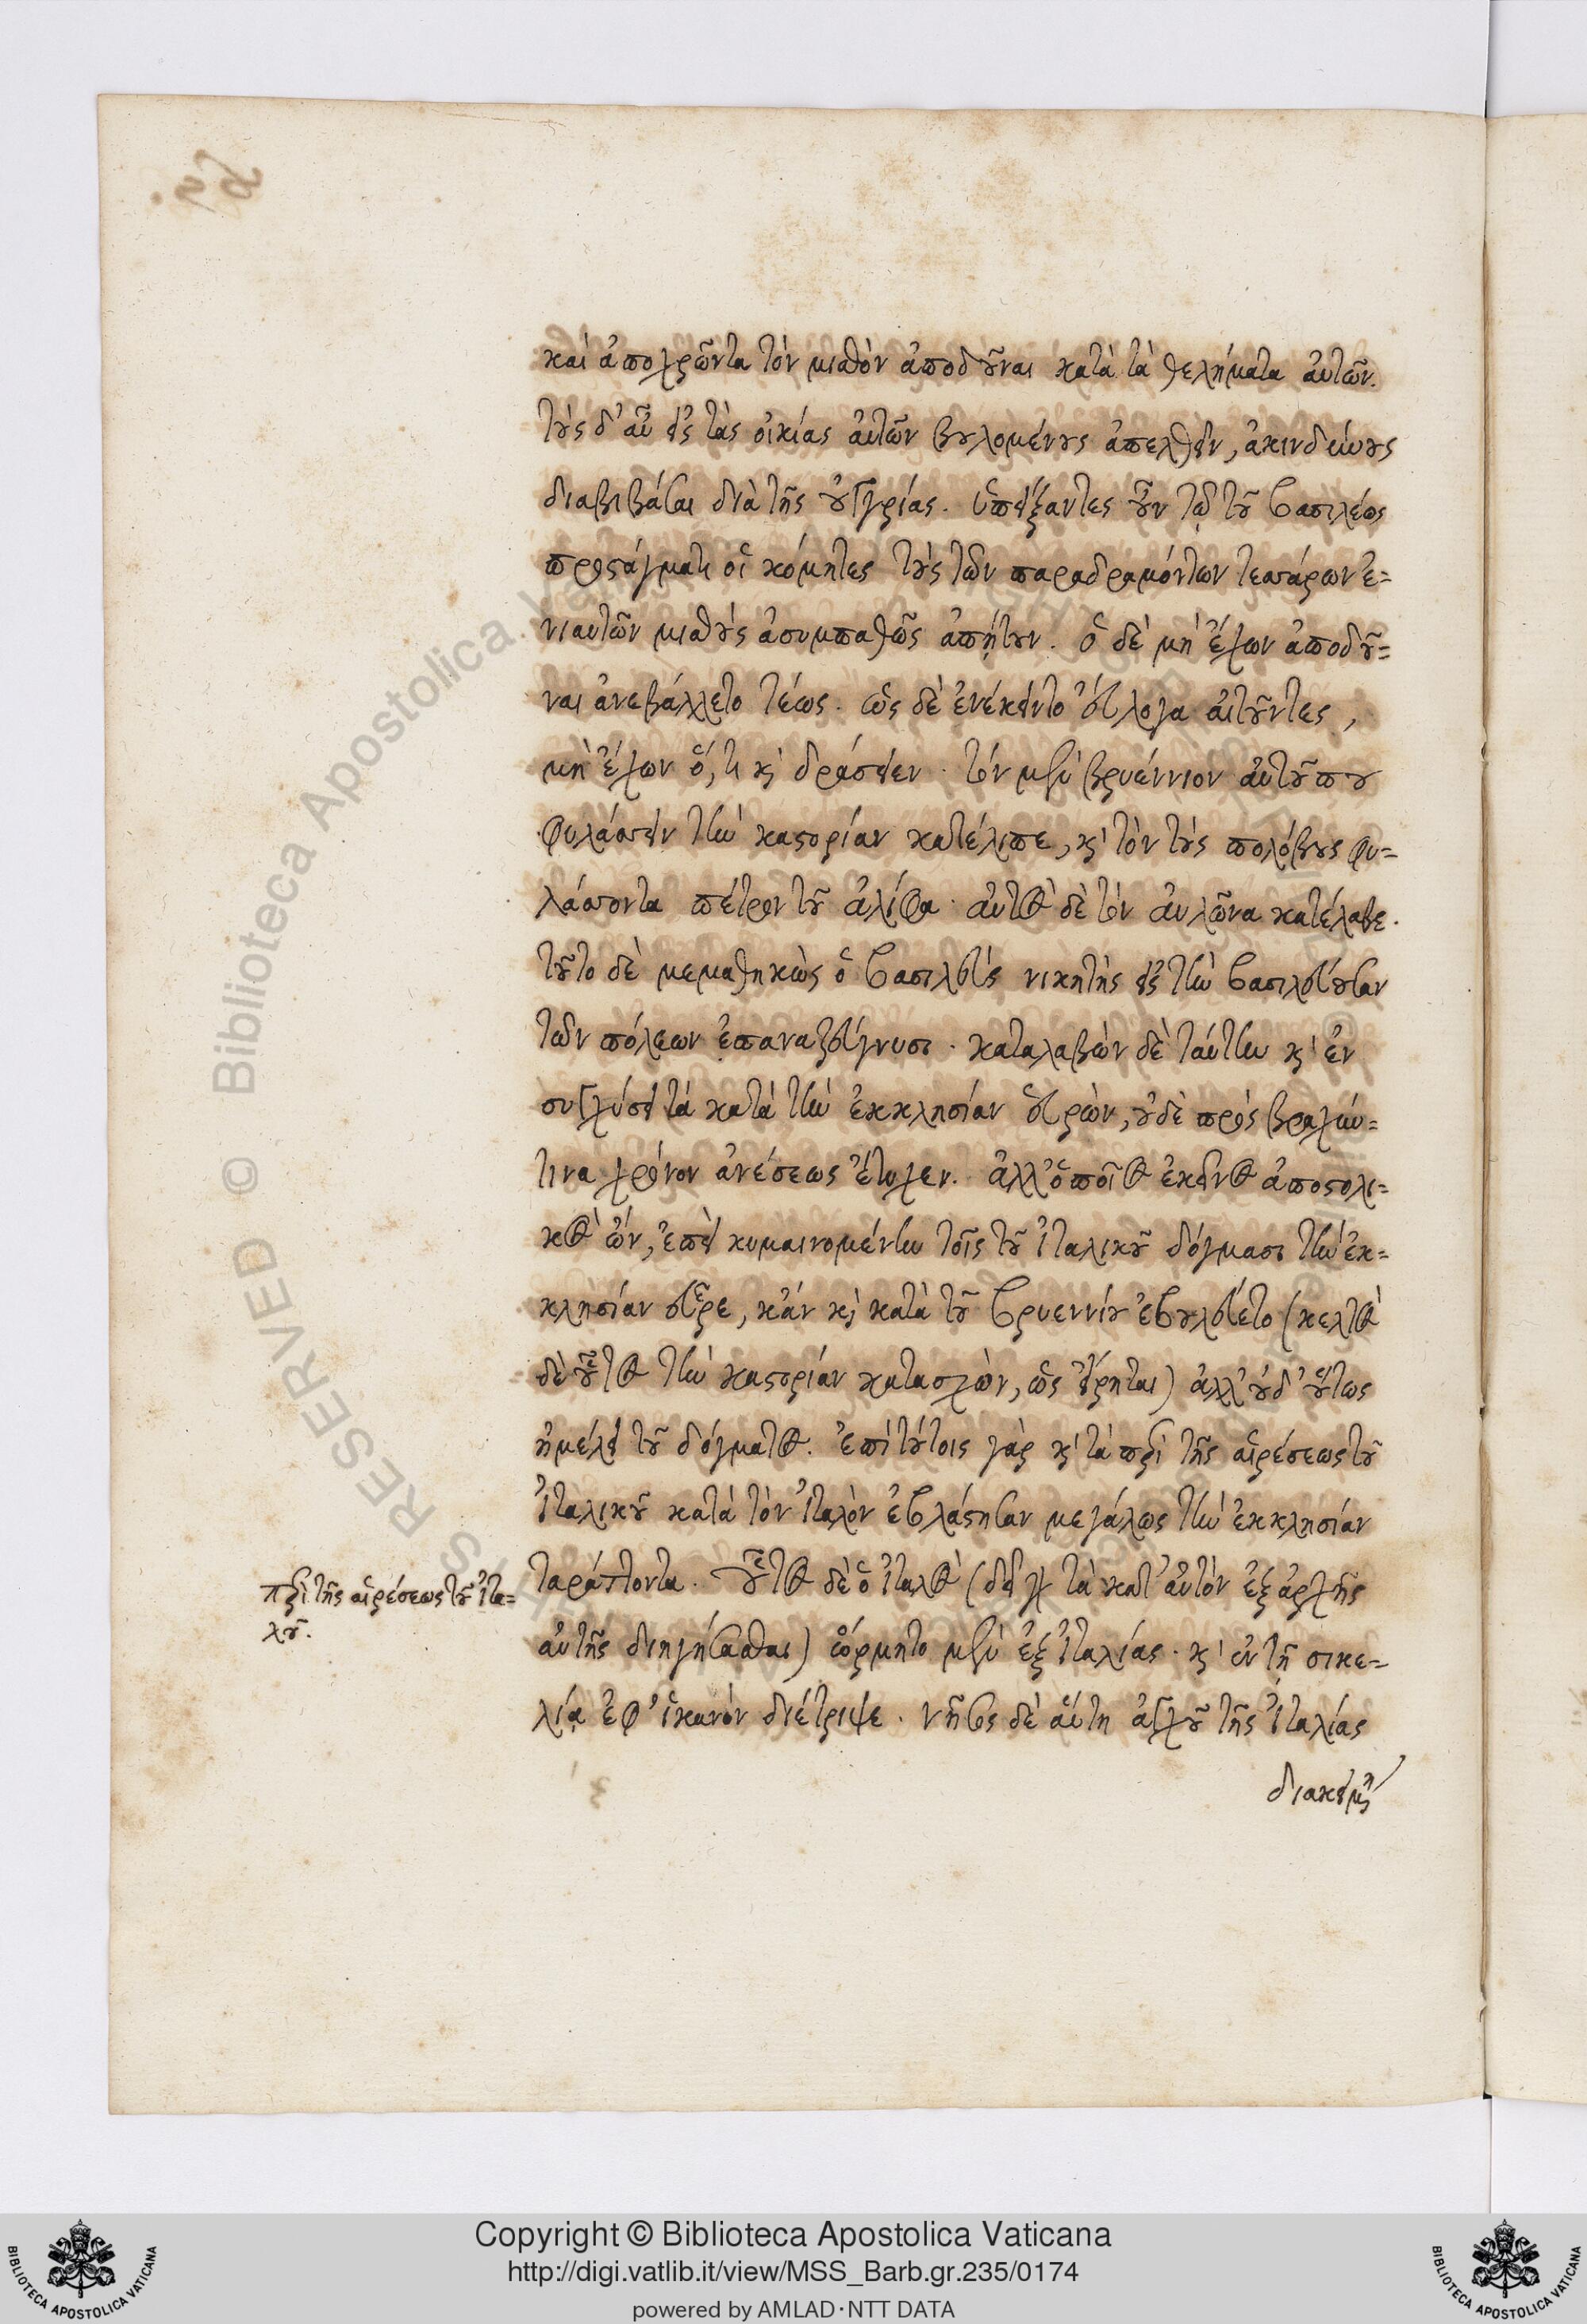 καὶ ἀποχρῶντα τὸν μισθὸν ἀποδοῦναι κατὰ τὰ θελήματα αὐτῶν.
τοὺς δ' αὖ εἰς τὰς οἰκίας αὐτῶν βουλομένους ἀπελθεῖν, ἀκινδύνους
διαβιβάσαι διὰ τῆς οὐγγρίας. ὑπείξαντες οὖν τῷ τοῦ βασιλέως
προστάγματι οἱ κόμητες τοὺς τῶν παραδραμόντων τεσσάρων ἐ=
νιαυτῶν μισθοὺς ἀσυμπαθῶς ἀπῄτουν. ὁ δὲ μὴ ἔχων ἀποδοῦ=
ναι ἀνεβάλλετο τέως. ὡς δὲ ἐνέκειντο εὔλογα αἰτοῦντες,
μὴ ἔχων ὅ,τι καὶ δράσειεν. τὸν μὲν βρυέννιον αὐτοῦ που
φυλάσσειν τὴν καστορίαν κατέλιπε, καὶ τὸν τοὺς πολόβους φυ=
λάσσοντα πέτρον τοῦ ἀλίφα. αὐτὸς δὲ τὸν αὐλῶνα κατέλαβε.
τοῦτο δὲ μεμαθηκὼς ὁ βασιλεὺς νικητὴς εἰς τὴν βασιλεύουσαν
τῶν πόλεων ἐπαναζεύγνυσι. καταλαβὼν δὲ ταύτην καὶ ἐν
συγχύσει τὰ κατὰ τὴν ἐκκλησίαν εὑρὼν, οὐδὲ πρὸς βραχύν=
τινα χρόνον ἀνέσεως ἔτυχεν. ἀλλ' ὁποῖος ἐκεῖνος ἀποστολι=
κὸς ὢν, ἐπεὶ κυμαινομένην τοῖς τοῦ ἰταλικοῦ δόγμασι τὴν ἐκ=
κλησίαν εὗρε, κἂν καὶ κατὰ τοῦ βρυεννίου ἐβουλεύετο (κελτὸς
δὲ οὗτος τὴν καστορίαν κατασχὼν, ὡς εἴρηται) ἀλλ' οὐδ' οὕτως
ἠμέλει τοῦ δόγματος. ἐπὶ τούτοις γὰρ καὶ τὰ περὶ τῆς αἱρέσεως τοῦ
ἰταλικοῦ κατὰ τὸν ἰταλὸν ἐβλάστησαν μεγάλως τὴν ἐκκλησίαν
ταράττοντα. οὗτος δὲ ὁ ἰταλὸς (δεῖ γὰρ τὰ κατ' αὐτὸν ἐξ ἀρχῆς
αὐτῆς διηγήσασθαι) ὥρμητο μὲν ἐξ ἰταλίας. καὶ ἐν τῇ σικε=
λίᾳ ἐφ' ἱκανὸν διέτριψε. νῆσος δὲ αὕτη ἀγχοῦ τῆς ἰταλίας
περὶ τῆς αἱρέσεως τοῦ ἰτα=
λοῦ.
© Biblioteca Apostolica Vaticana
RESERVED
Copyright © Biblioteca Apostolica Vaticana
http://digi.vatlib.it/view/MSS_Barb.gr.235/0174
powered by AMLAD·NTT DATA
BIBLIOTECA APOSTOLICA VATICANA
BIBLIOTECA APOSTOLICA VATICANA